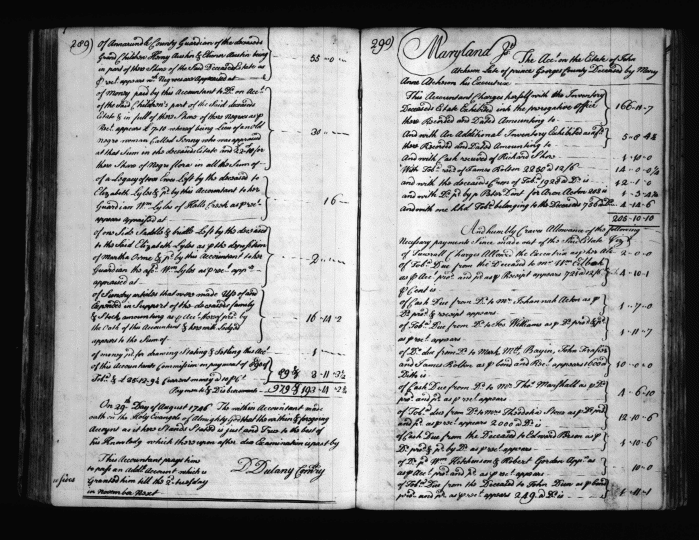 289)
of Annarundle County Guardian of the deceaseds
Grand Children Henry Austin & Elinor Austin being
in part of there Share of the Said Deceaseds Estate as
pr rect. appears
35 - 0 -
of Money paid by this Accountant to Do. on Acct.
of the said Children's part of the Said deceaseds
Estate & in full of there Share of there Negroes as pr
Rect. appears £ 7-10 whereof being
negro woman Called Jenny who was appraised
at that Sum in the deceaseds Estate and for
there Share of Negro flora in all the Sum of
30 -
of a Legacy of two Cows Left by the deceased to
Elizabeth Lyles & pd. by this Accountant to her
Guardian Wm. Lyles of Halls Creek as pr rect.
appears appraised at
16 -
of one Side Saddle & bridle Left by the deceased
to the Said Elizabeth Lyles as pr the deposition
of Martha Orme & pd. by this Accountant to her
Guardian the afd. Wm. Lyles as pr rect.
appraised at
2 -
of Sundry articles that were made Use of and
Expended in Support of the deceaseds family
& Stock amounting as pr Acct. & proved by
the Oath of this Accountant
appears to the Sum of
16 - 14 - 2
of money pd. for drawing Stating & Setling this Acct.
1 -
of this Accountants Commission on payment of
Payments & Disbursmts.
On 29th. Day of August 1746 The within Accountant made
oath on the Holy Evangels of Almighty God that the within & foregoing
Account as it here Stands Stated is just and True to the best of
his Knowledge which thereupon after due Examination is past by
This Accountant prays time
to pass an Addl. Account which is
Granted him till the 2d. tuesday
in november Next
D Dulany Comry
290)
Maryland Ss. The Acct. on the Estate of John
Acheson Late of prince Georges County Deceased by Mary
Anne Acheson his Executrix
This Accountant Charges herself with the Inventory
Deceaseds Estate Exhibited into the prerogative Office
there Recorded and Dated Amounting to
166 - 11 - 7
And with An Additional Inventory Exhibited as afd.
there Recorded and Dated Amounting to
5 - 8 - 4½
And with Cash received of Richard
1 - 10 - 0
With Tobo. recd. of James Nelson 2250 @ 12/6
14 - 0 - 0¾
and with the deceaseds Crop of Tobo. 1928 @ Do. is
12 - 1 - 0
205 - 10 - 10
And humbly Craves Allowance of the following
Necessary payments Since made out of the Said Estate Vizt.
of Funerall Charges Allowed the Executrix
2 - 0 - 0
of Tobo. Due from the Deceased to Mr.
as pr Acct. prod. and pd. as pr Receipt appears 721 @ 12/6
pr Cent is
4 - 10 - 1
of Cash Due from Do. to Mr. Johannah Acton as pr
Do. prod. & receipt appears
1 - 7 - 0
of Tobo. Due from Do. to Jos. Williams as pr Do. prod. & pd.
as pr rect. appears
1 - 11 - 7
of Do. due from Do. to Mark, Matt. Bayin, John Frasier
and James Horton as pr bond and Rect. appears 1600 @
Ditto is
10 - 0 - 0
of Cash Due from Do. to Mr. Thos. Marshall as pr Do.
prod. and pd. as pr rect. appears
4 - 6 - 10
of Tobo. due from Do. to Mr. Theodotia Stone as pr Do. prod.
and pd. as pr rect. appears 2000 @ Do. is
12 - 10 - 6
of Cash Due from the Deceased to Edward Person as pr
Do. prod. & pd. by Do. as pr rect. appears
4 - 10 - 6
of Do. pd. Wm. Hutchinson & Robert Gordon
as pr Acct. prod. and pd. as pr rect. appears
10 - 0
of Tobo. Due from the Deceased to John Dun as pr bond
prod. and pd. as pr rect. appears 249 @ Do. is
1 - 11 - 1